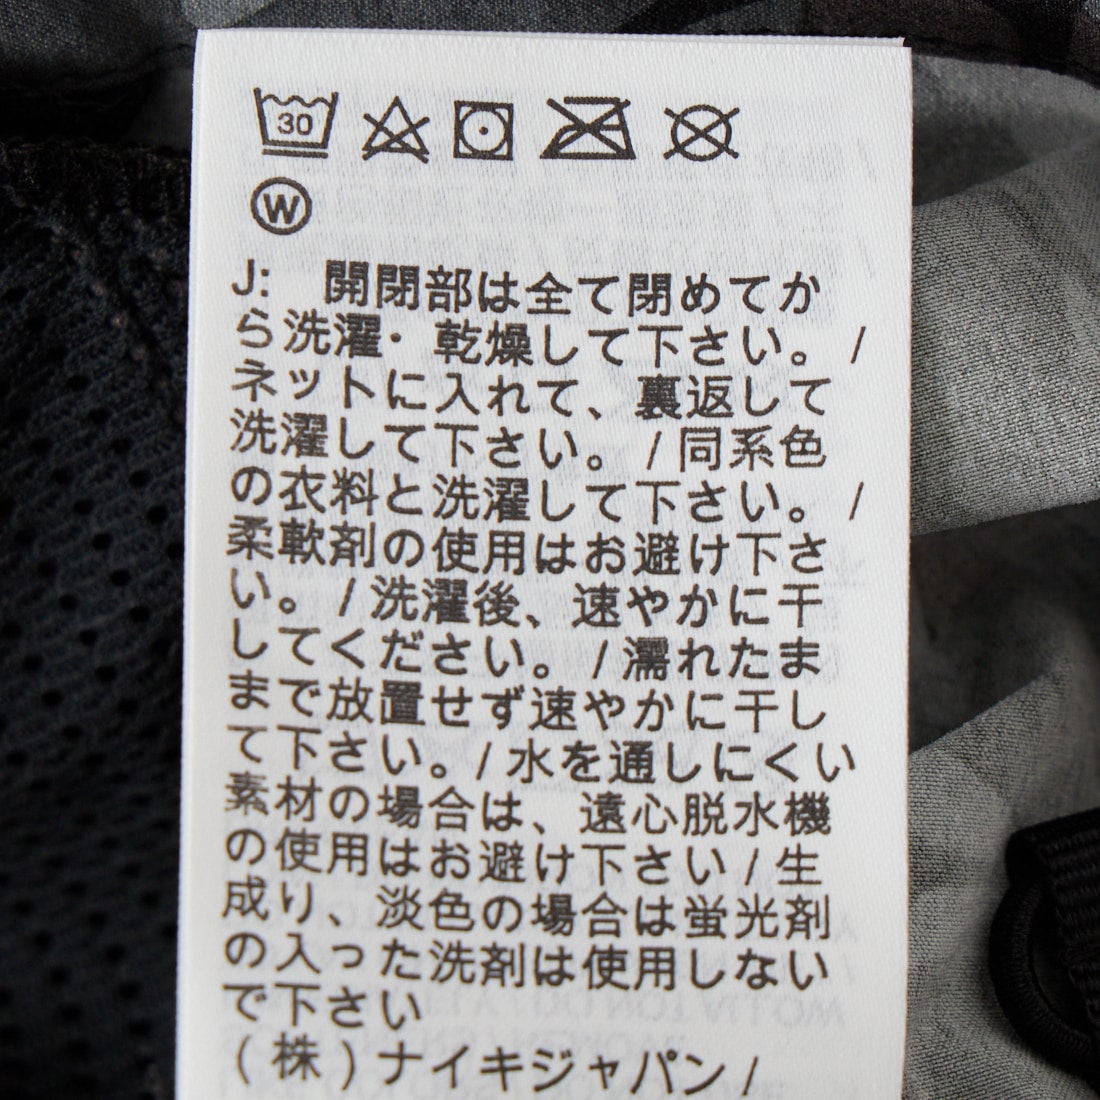 30
W
J: 開閉部は全て閉めてか
ら洗濯・乾燥して下さい。/
ネットに入れて、裏返して
洗濯して下さい。/同系色
の衣料と洗濯して下さい。/
柔軟剤の使用はお避け下さ
い。/洗濯後、速やかに干
してください。/濡れたま
まで放置せず速やかに干し
て下さい。/水を通しにくい
素材の場合は、遠心脱水機
の使用はお避け下さい/生
成り、淡色の場合は蛍光剤
の入った洗剤は使用しない
で下さい
(株)ナイキジャパン/